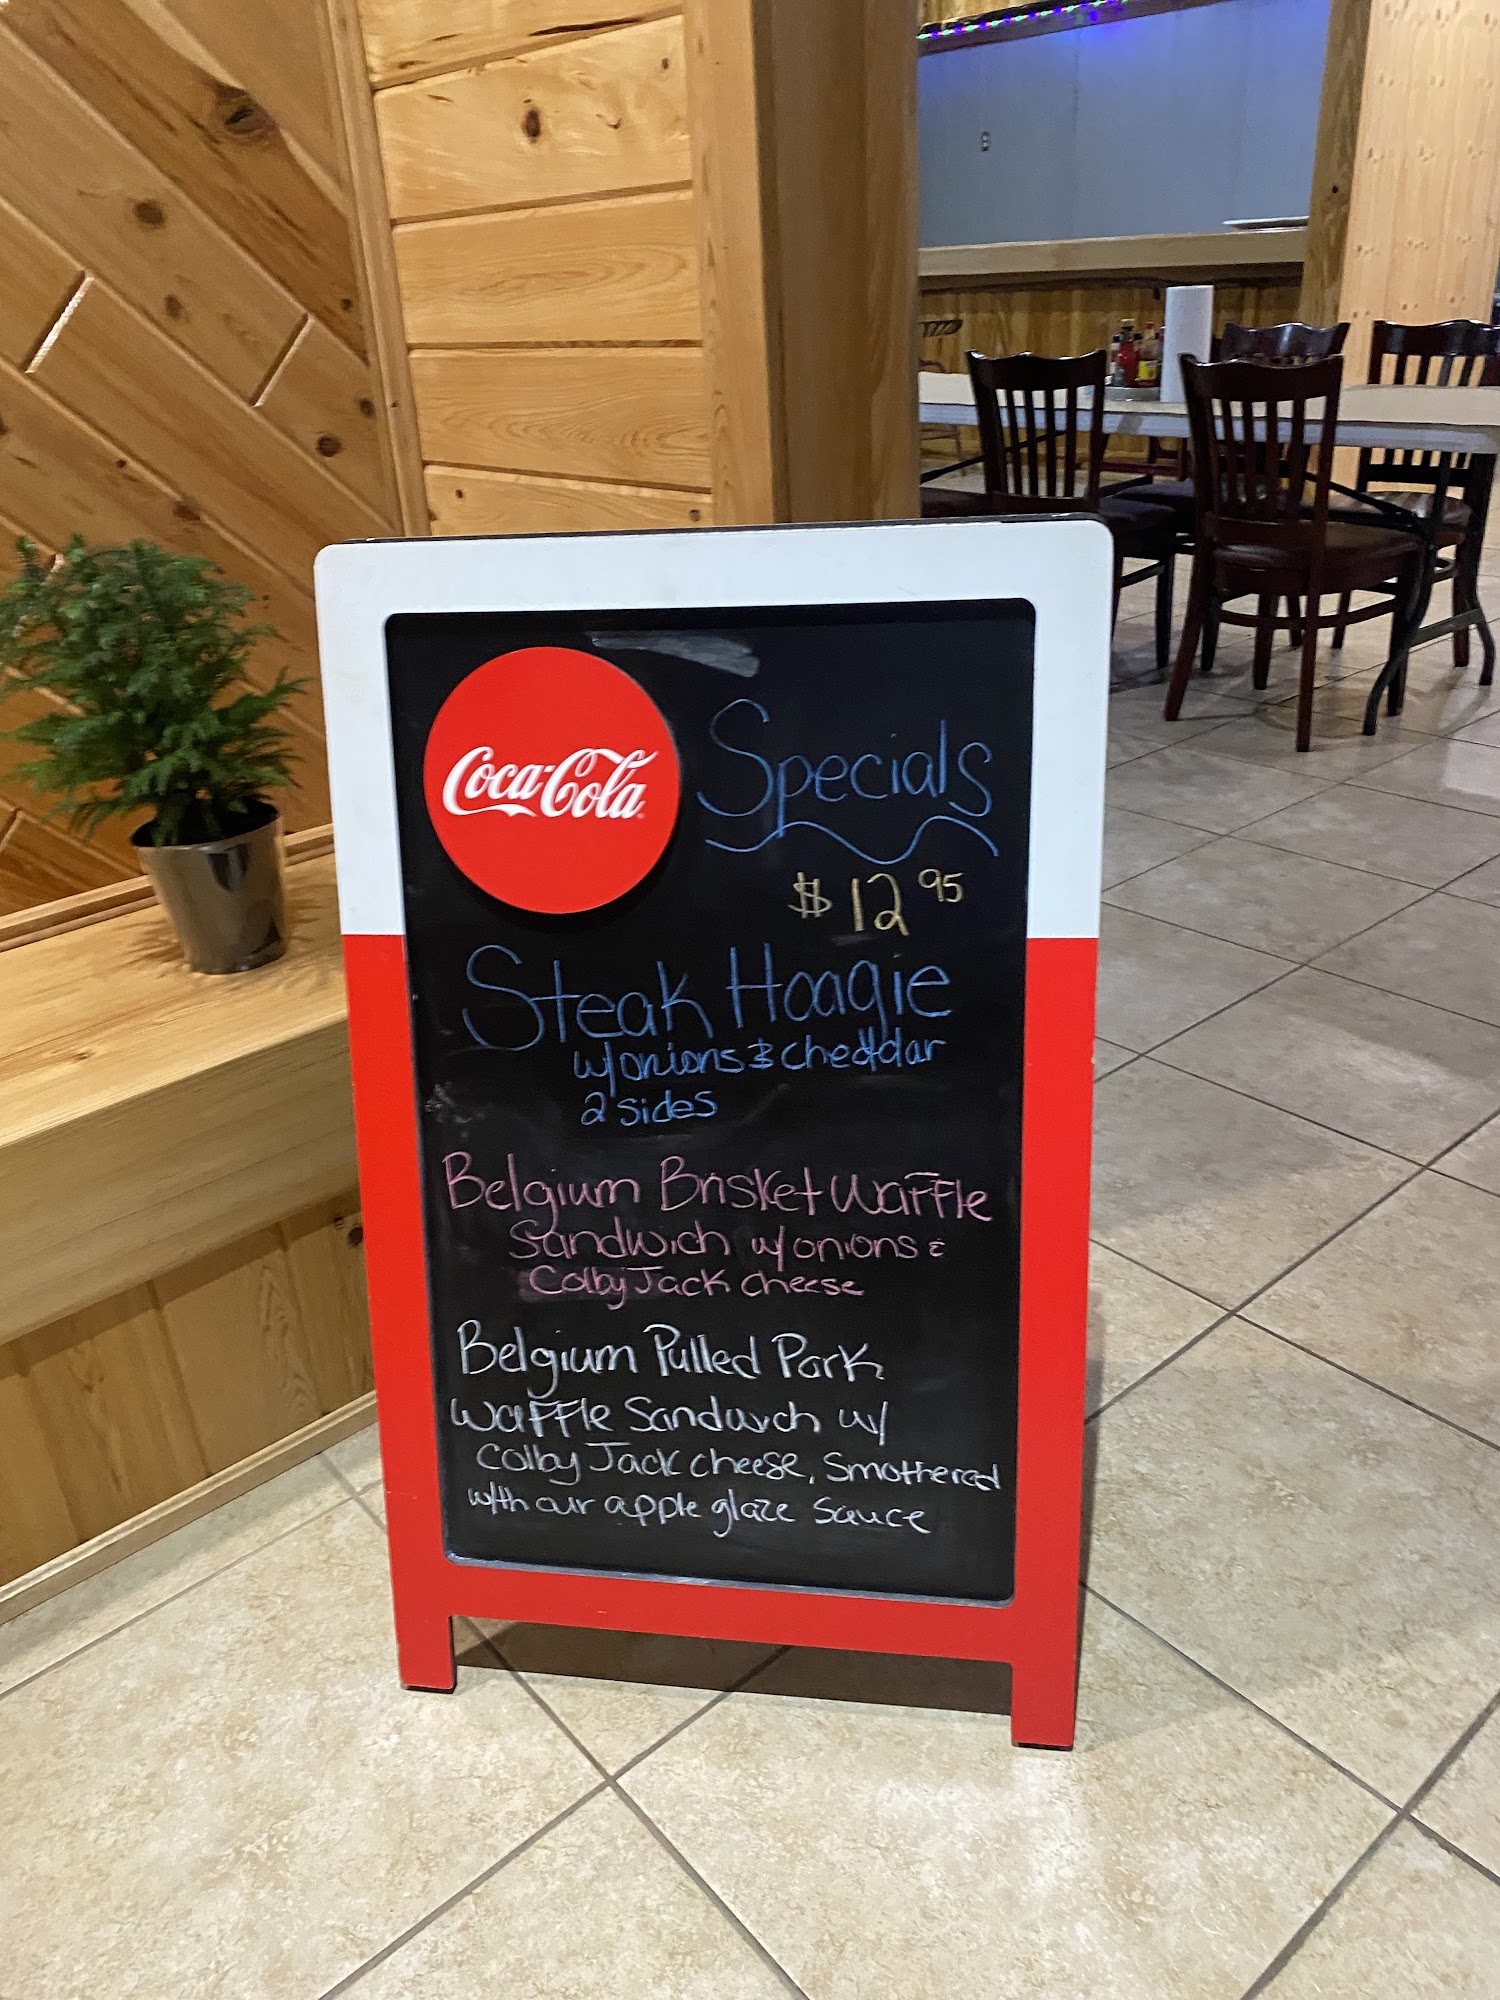 Coca-Cola
Specials
$12 95
Steak Hoagie
w/onions & cheddar
2 sides
Belgium Brisket Waffle
Sandwich w/onions &
Colby Jack cheese
Belgium Pulled Pork
Waffle Sandwich w/
Colby Jack cheese, Smothered
w/th our apple glaze sauce